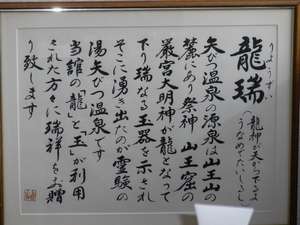 龍瑞
りゅうずい
龍神が天からてるよ
矢びつ温泉の源泉は山王山の
麓にあり祭神 山王窟の
巌宮大明神が龍となって
下り瑞なる玉器を示され
そこに湧き出たのが霊験の
湯矢びつ温泉です
当舘の「龍」と「玉」が利用
された方々に瑞祥をお贈
り致します